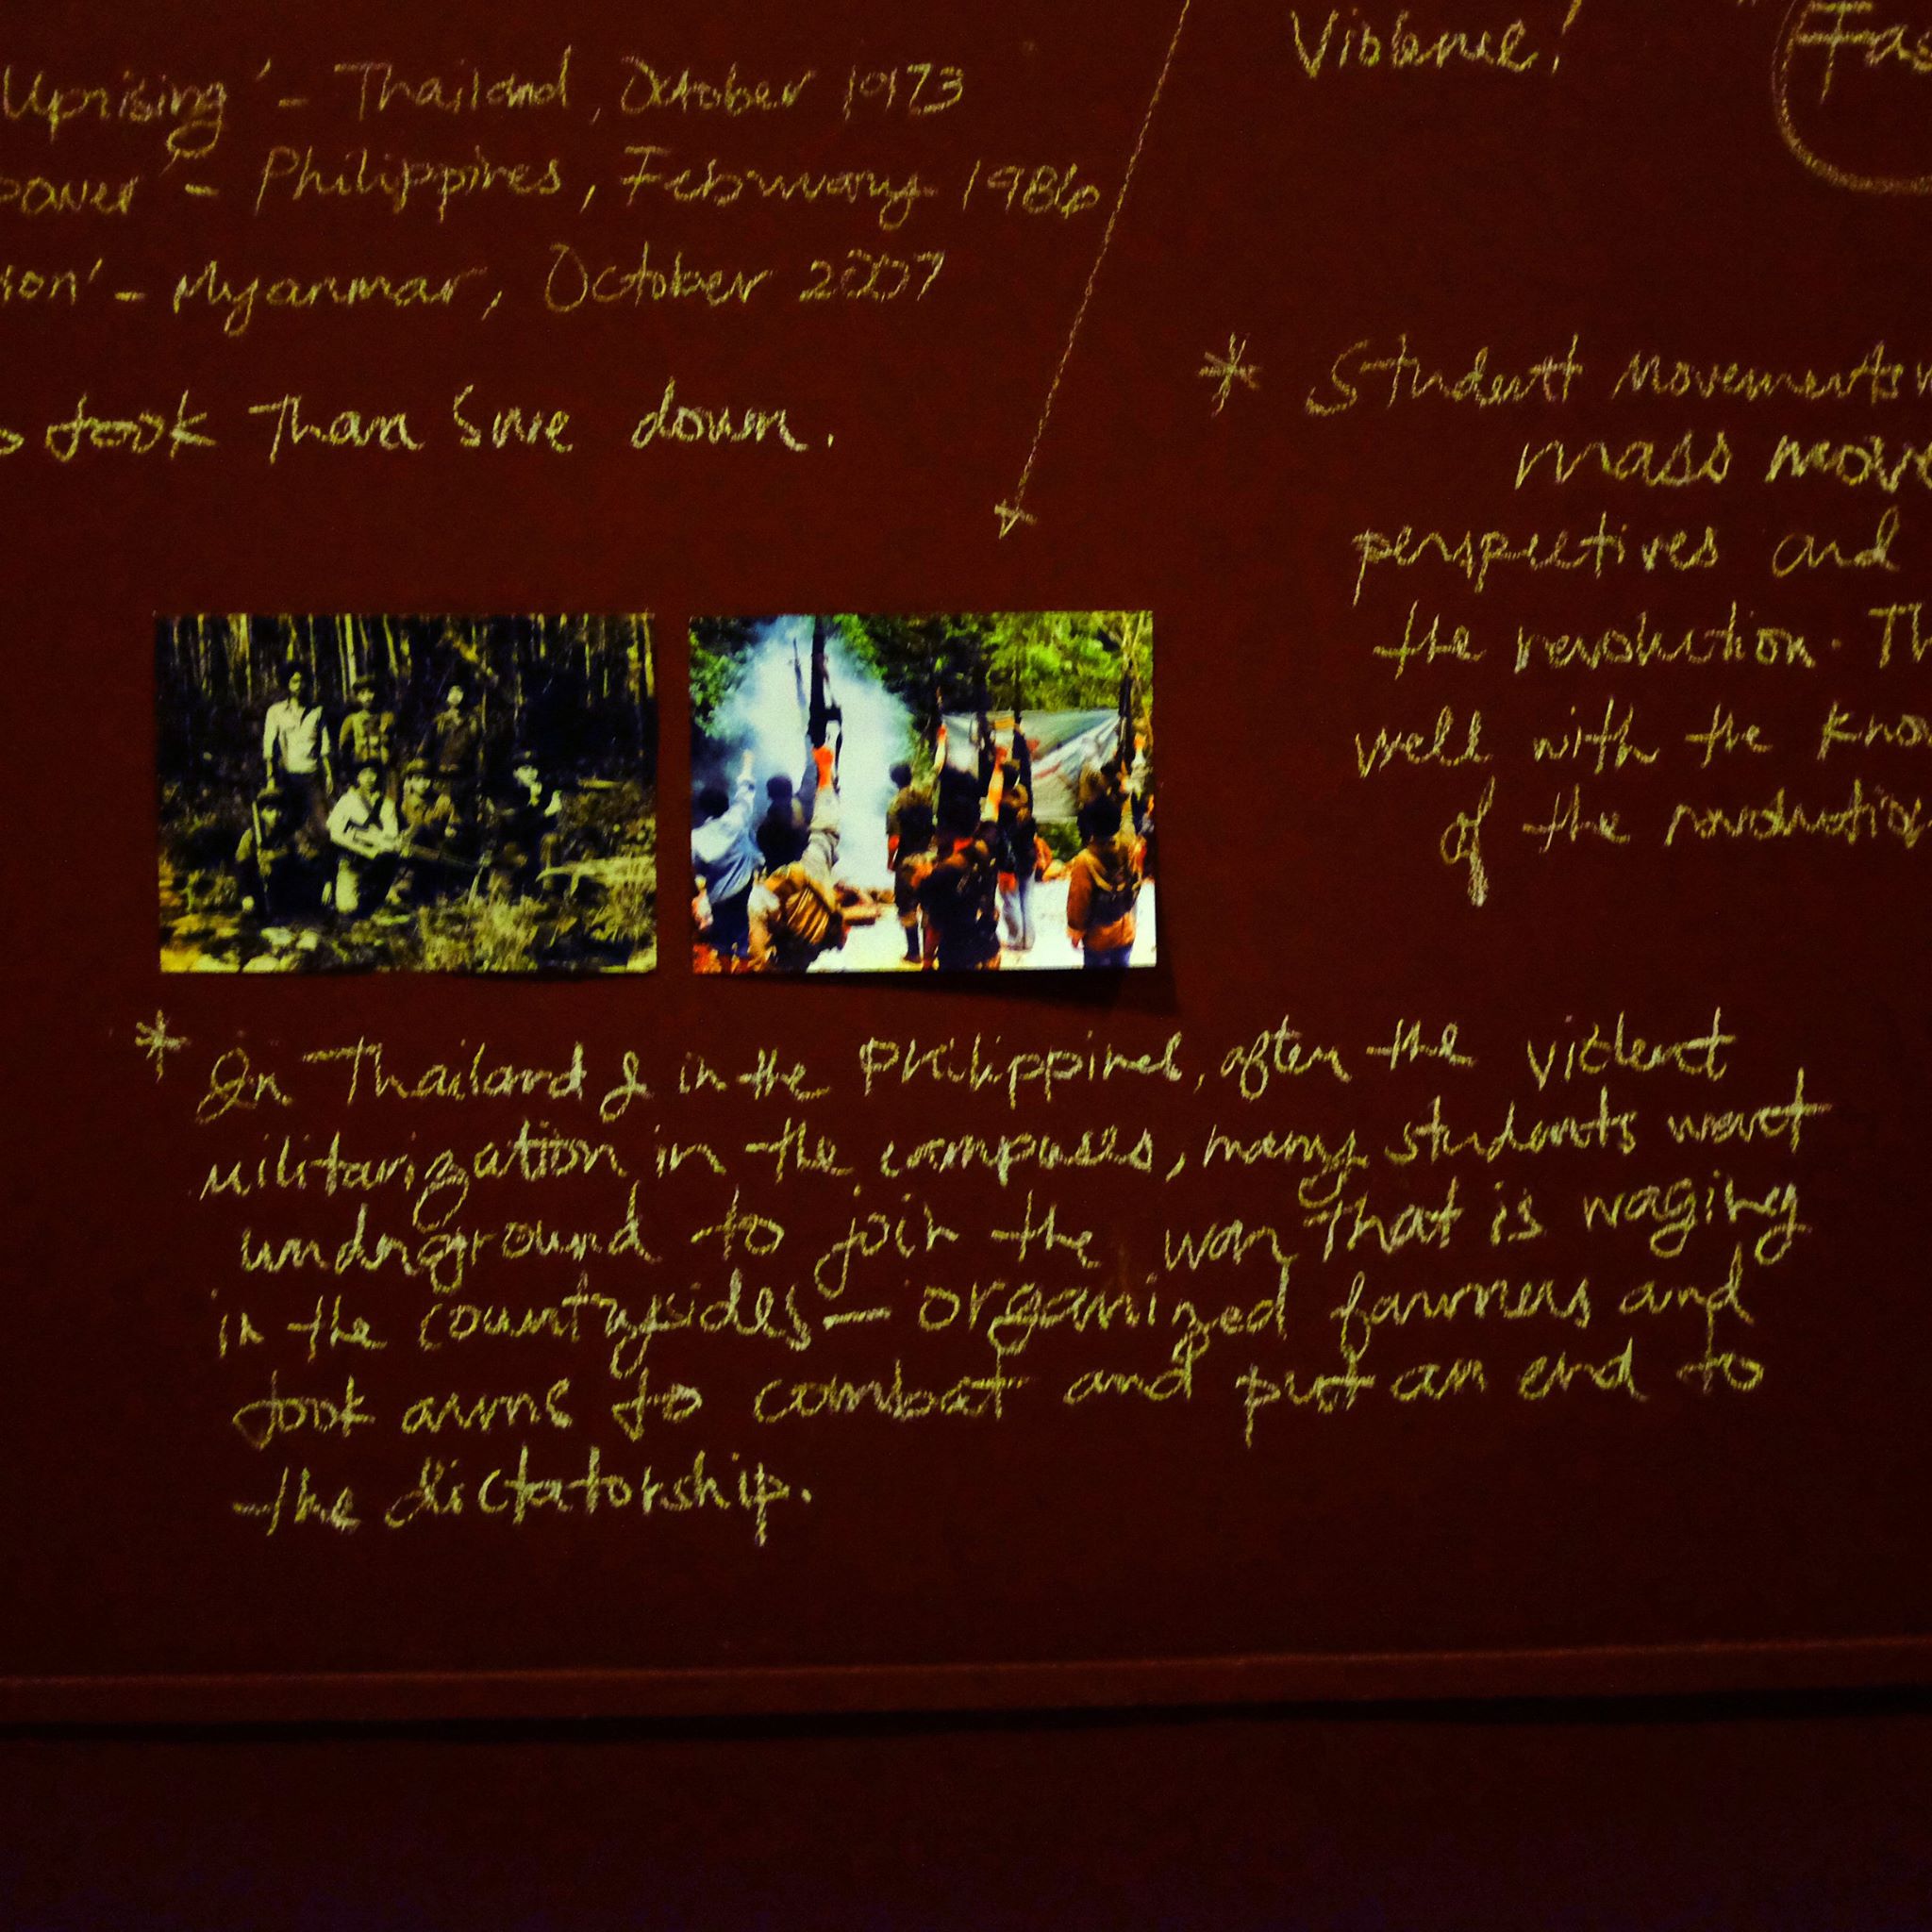 Uprising' - Thailand, October 1973
power' - Philippines, February 1986
ion' - Myanmar, October 2007
took Than Swe down.
Violence!
Fas
* Student Movements
mass move
perspectives and
the revolution. Th
well with the kno
of the revolutio
* In Thailand & in the Philippines, after the violent
militarization in the campuses, many students went
underground to join the war that is waging
in the countrysides - organized farmers and
took arms to combat and put an end to
the dictatorship.